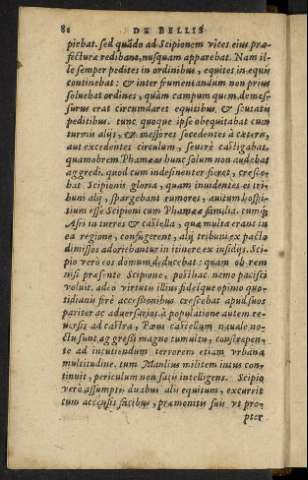 82 DE BELLIS
piebat. sed quãdo ad Scipionem vices eius præ-
fecturæ redibant, nusquam apparebat. Nam il-
le semper pedites in ordinibus, equites in equis
continebat: & inter frumentandum non prius
soluebat ordines, quàm campum quem demes-
surus erat circumdaret equitibus & scutatis
peditibus. tunc quoque ipse obequitabat cum
turmis alijs, & messores secedentes à cæteris,
aut excedentes circulum, seuerè castigabat.
quamobrem Phamæas hunc solum non audebat
aggredi. quod cum indesinenter fieret, cresce-
bat Scipionis gloria, quam inuidentes ei tri-
buni alij, spargebant rumores, auitum hospi-
tium esse Scipioni cum Phamææ familia. cumque
Afri in turres & castella, quæ multa erant in
ea regione, confugerent, alij tribuni ex pacto
dimissos adoriebantur in itinere ex insidijs. Sci-
pio verò eos domum deducebat: quam ob rem
nisi præsente Scipione, posthac nemo pacisci
voluit. adeo virtutis illius fideique opinio quo-
tidianis ferè accessionibus crescebat apud suos
pariter ac aduersarios. à populatione autem re-
uersis ad castra, Pœni castellum nauale no-
ctu sunt aggressi magno tumultu, constrepen-
te ad incutiendum terrorem etiam vrbana
multitudine. tum Manlius militem intus con-
tinuit, periculum non satis intelligens. Scipio
verò assumptis duabus alis equitum, excurrit
cum accensis facibus, præmonitis suis vt pro-
pter